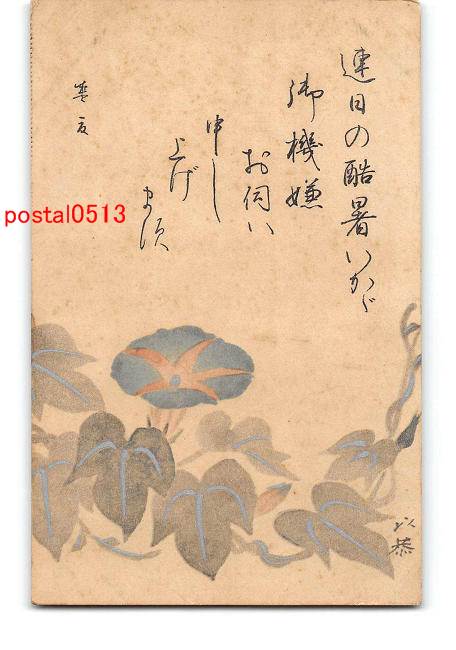 連日の酷暑いかが
御機嫌
お伺い
申し
上げ
ます
盛夏
postal0513
以恭